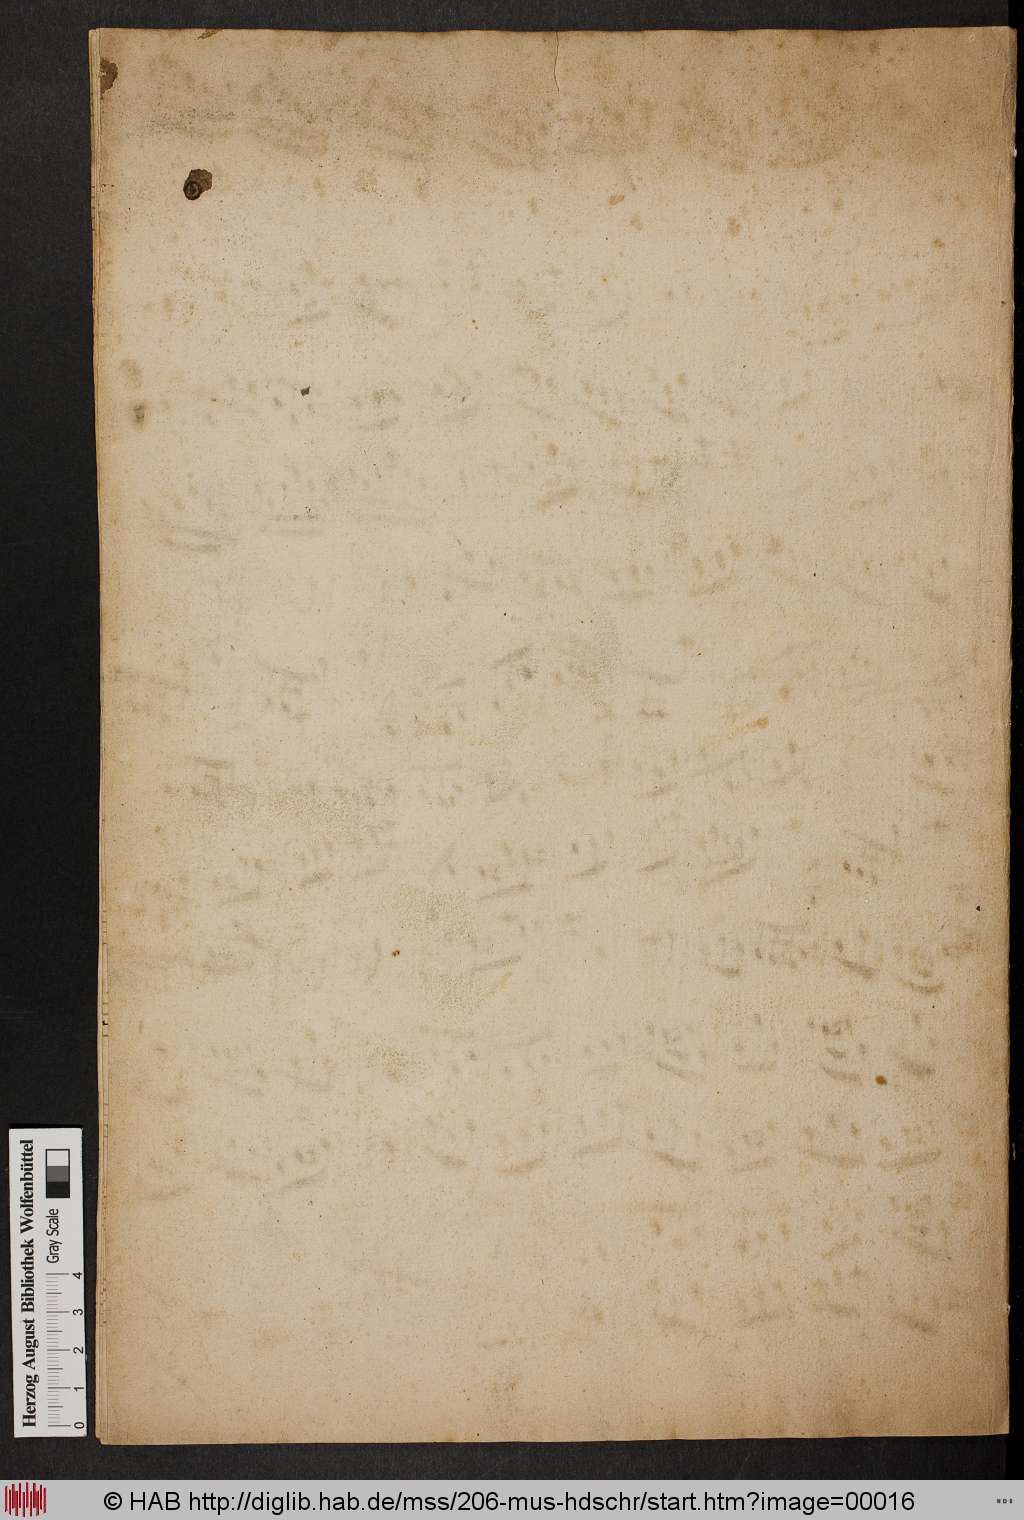 Herzog August Bibliothek Wolfenbüttel
Gray Scale
0 1 2 3 4
© HAB http://diglib.hab.de/mss/206-mus-hdschr/start.htm?image=00016